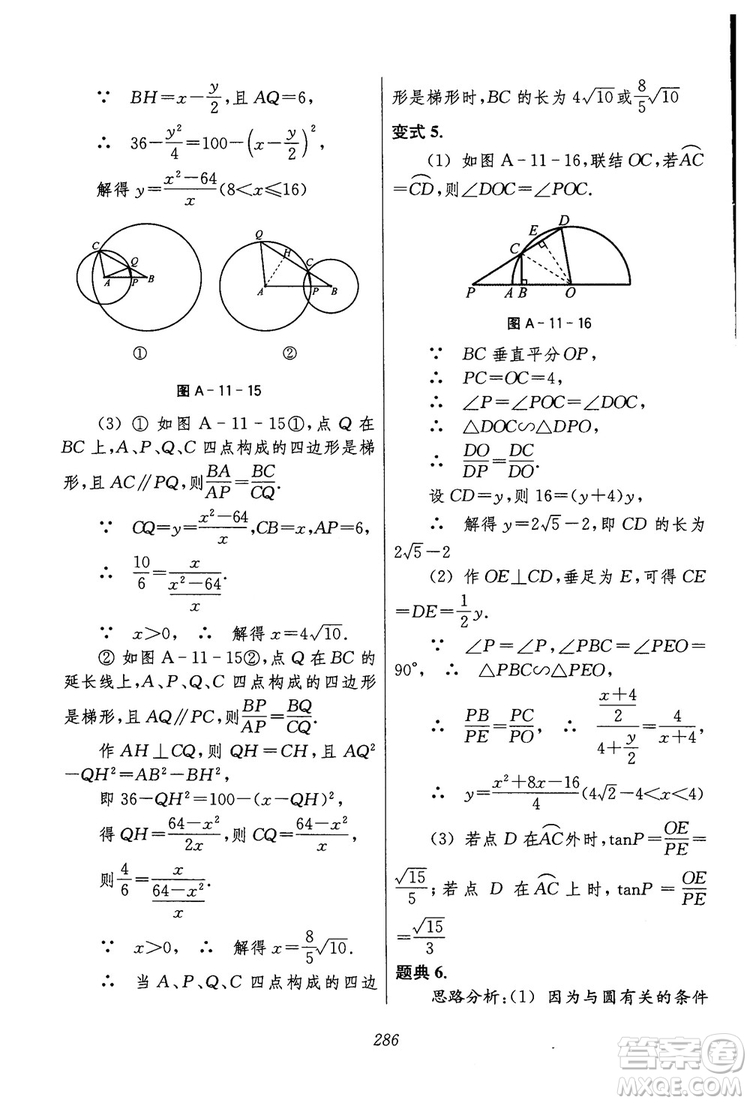 ∵ BH=x−y/2,且 AQ=6,
∴ 36−y²/4=100−(x−y/2)²,
解得 y=(x²−64)/x(8<x⩽16)
C Q A P B
Q H C A P B
① ②
图 A-11-15
(3) ① 如图 A-11-15①,点 Q 在
BC 上,A、P、Q、C 四点构成的四边形是梯
形,且 AC∥PQ,则BA/AP=BC/CQ.
∵ CQ=y=(x²−64)/x,CB=x,AP=6,
∴ 10/6=x/((x²−64)/x).
∵ x>0, ∴ 解得 x=4√10.
② 如图 A-11-15②,点 Q 在 BC 的
延长线上,A、P、Q、C 四点构成的四边形
是梯形,且 AQ∥PC,则BP/AP=BQ/CQ.
作 AH⊥CQ,则 QH=CH,且 AQ²
−QH²=AB²−BH²,
即 36−QH²=100−(x−QH)²,
得 QH=(64−x²)/2x,则 CQ=(64−x²)/x,
则4/6=x/((64−x²)/x)
∵ x>0, ∴ 解得 x=8/5√10.
∴ 当 A、P、Q、C 四点构成的四边
形是梯形时,BC 的长为 4√10或8/5√10
变式 5.
(1) 如图 A-11-16,联结 OC,若AC⌒
=CD⌒,则∠DOC=∠POC.
D E C P A B O
图 A-11-16
∵ BC 垂直平分 OP,
∴ PC=OC=4,
∴ ∠P=∠POC=∠DOC,
∴ △DOC∽△DPO,
∴ DO/DP=DC/DO.
设 CD=y,则 16=(y+4)y,
∴ 解得 y=2√5−2,即 CD 的长为
2√5−2
(2) 作 OE⊥CD,垂足为 E,可得 CE
=DE=1/2y.
∵ ∠P=∠P,∠PBC=∠PEO=
90°, ∴ △PBC∽△PEO,
∴ PB/PE=PC/PO, ∴ ((x+4)/2)/(4+y/2)=4/(x+4),
∴ y=(x²+8x−16)/4(4√2−4<x<4)
(3) 若点 D 在AC⌒外时,tanP=OE/PE=
√15/5;若点 D 在AC⌒上时,tanP=OE/PE
=√15/3
题典 6.
思路分析:(1) 因为与圆有关的条件
286
答案圈